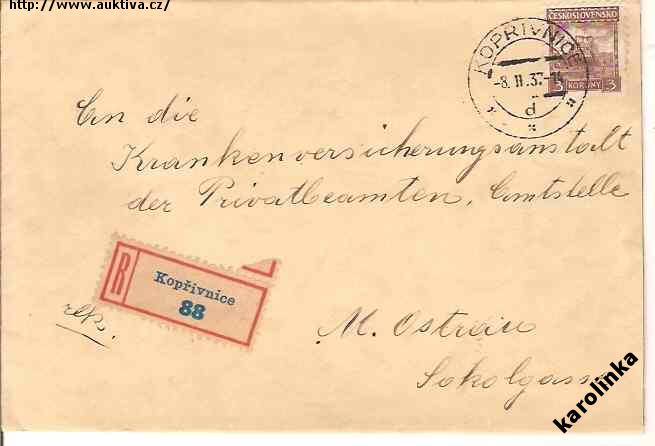 http://www.auktiva.cz/
ČESKOSLOVENSKO
3 KORUNY 3
KOPŘIVNICE
-8.II.37.-14
d
An die
Krankenversicherungsanstalt
der Privatbeamten, Amtstelle
R
Kopřivnice
88
rek.
M. Ostrau
Sokolgasse
karolinka